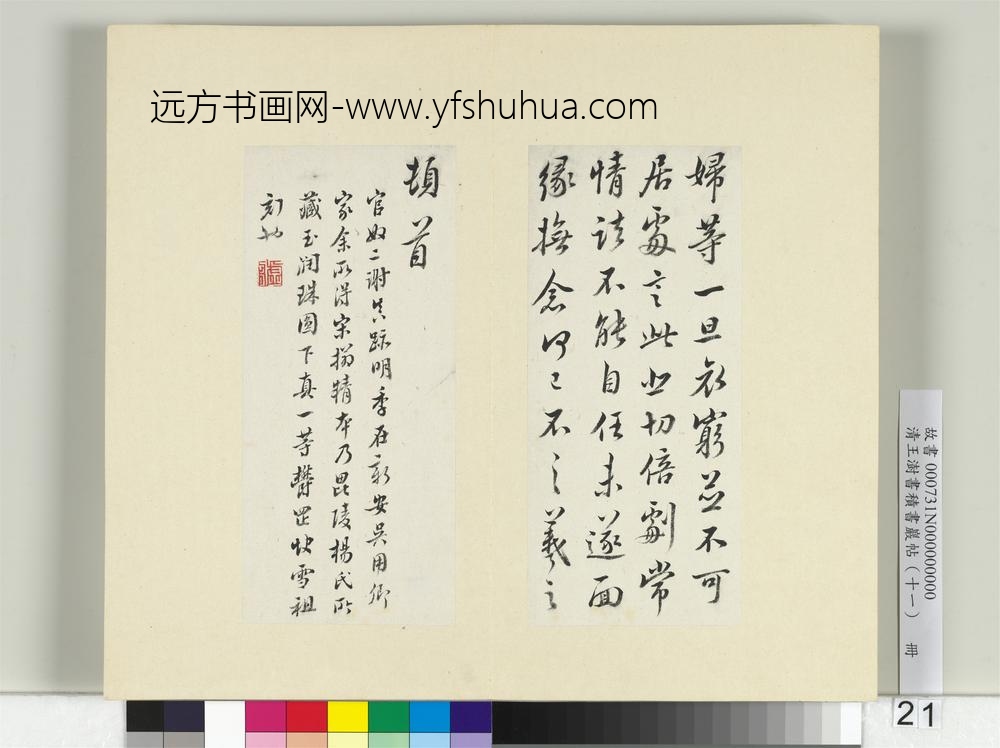 远方书画网-www.yfshuhua.com
婦等一旦哀窮並不可
居處言此悲切倍劇常
情諸不能自任未遂面
緣撫念何已不之羲之
頓首
官奴二謝真跡明季在新安吳用卿
家余所得宋搨精本乃毘陵楊氏所
藏玉潤珠圓下真一等欝罡快雪祖
刻也
故書 000731N000000000
清王澍書積書巖帖(十一) 冊
21